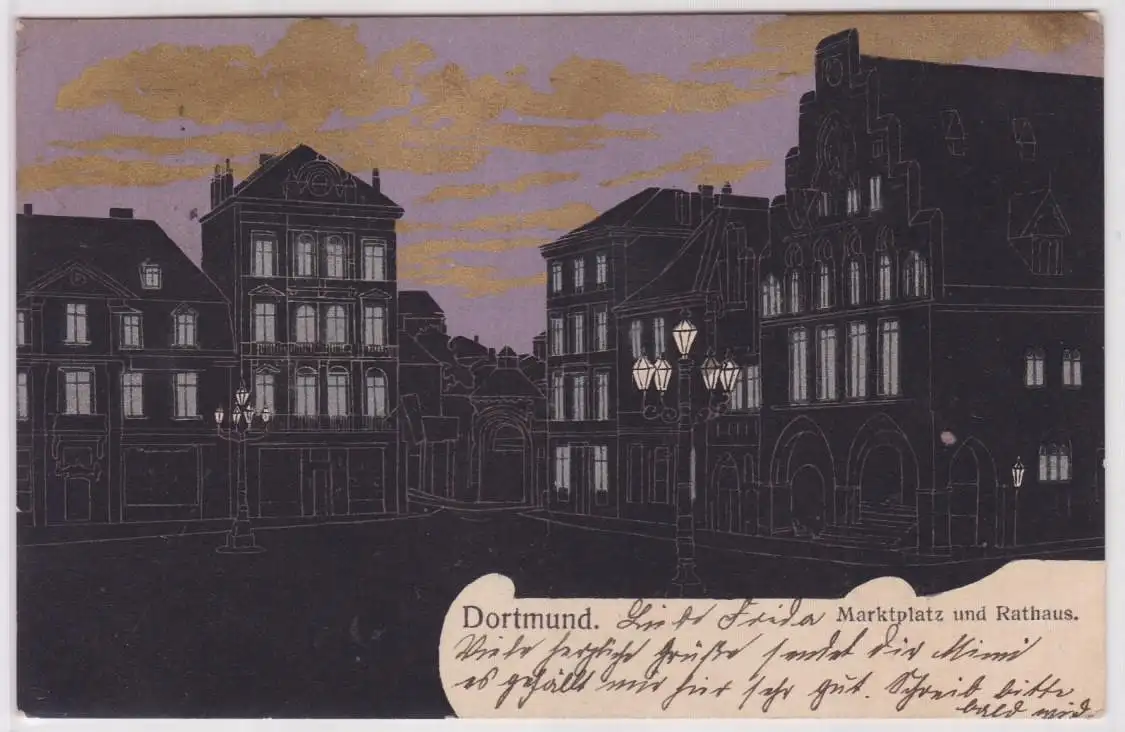 Dortmund. Liebe Frida Marktplatz und Rathaus.
Viele herzliche Grüße sendet dir Mimi
es gefällt mir hier sehr gut. Schreib bitte
bald wid.